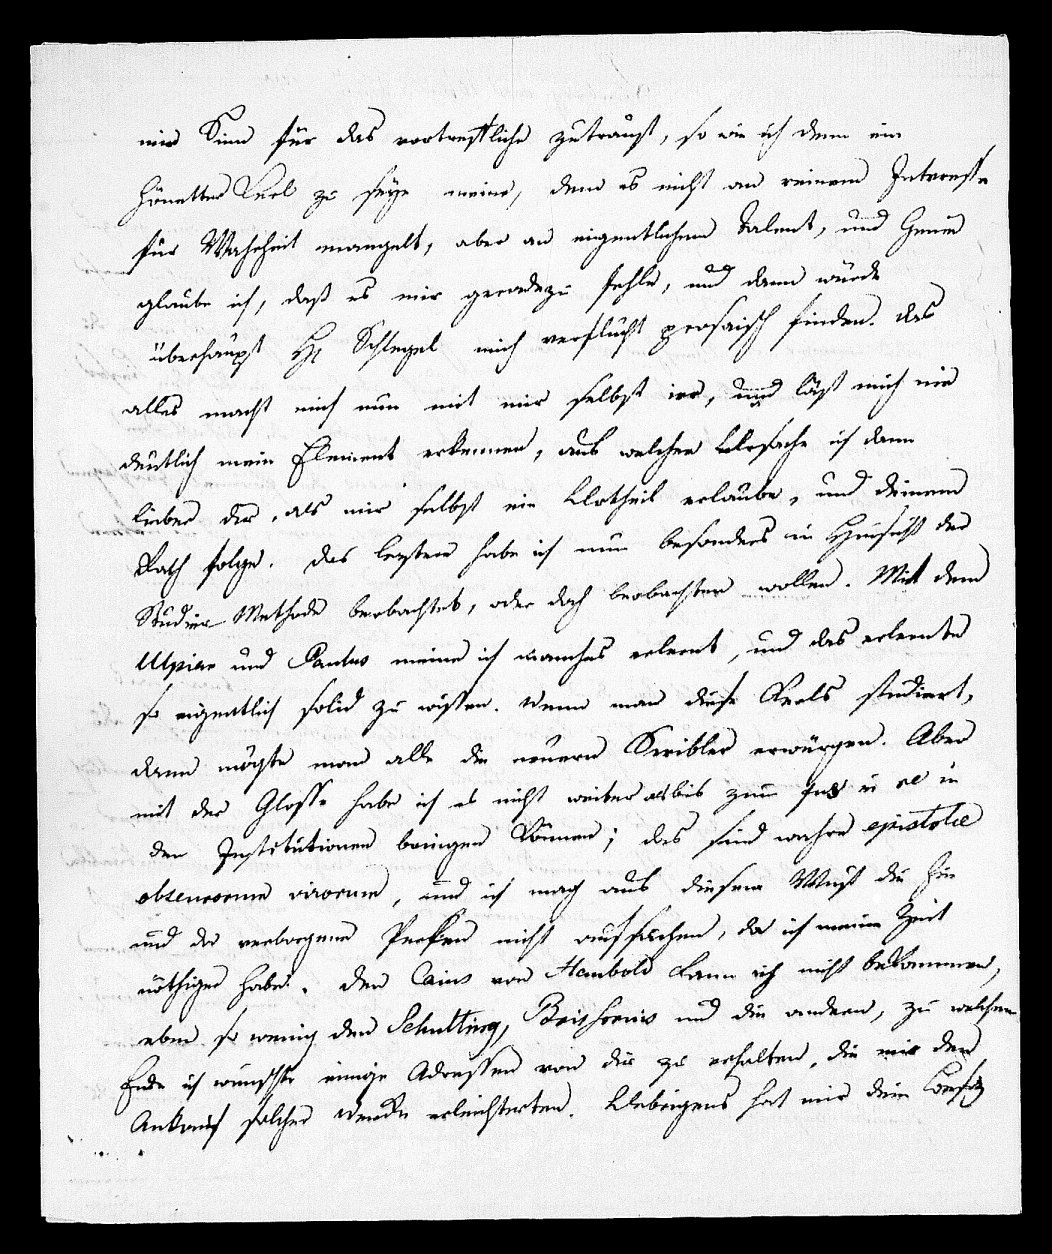 mir Sinn für das vortreffliche zutraust, so wie ich denn ein
honetter Kerl zu seyn meine, dem es nicht an reinem Interesse
für Wahrheit mangelt, aber an eigentlichem Talent, und Genie
glaube ich, daß es mir geradezu fehle, und dann würde
überhaupt Hr Schlegel mich verflucht prosaisch finden. Das
alles macht mich nun mit mir selbst irre, und läst mich nie
deutlich mein Element erkennen, aus welcher Ursache ich dann
lieber dir, als mir selbst ein Urtheil erlaube, und deinem
Rath folge. Das leztere habe ich nun besonders in Hinsicht der
Studier Methode beobachtet, oder doch beobachten wollen. Mit dem
Ulpian und Paulus meine ich manches erlernt, und das erlernte
so eigentlich solid zu wissen. Wenn man diese Kerls studiert,
dann mögte man alle die neuern Scribler erwürgen. Aber
mit der Glosse habe ich es nicht weiter als bis zum Jus in re in
den Institutionen bringen können; das sind wahre epistolae
obscurorum virorum, und ich mag aus diesem Wust die hie
und da verborgenen Perlen nicht aufsuchen, da ich meine Zeit
nöthiger habe. Den Caius von Haubold kann ich nicht bekommen,
eben so wenig den Schulting, Brissonius und die andern, zu welchem
Ende ich wünschte einige Adressen von dir zu erhalten, die mir den
Ankauf solcher Werke erleichterten. Uebrigens hat mir dein